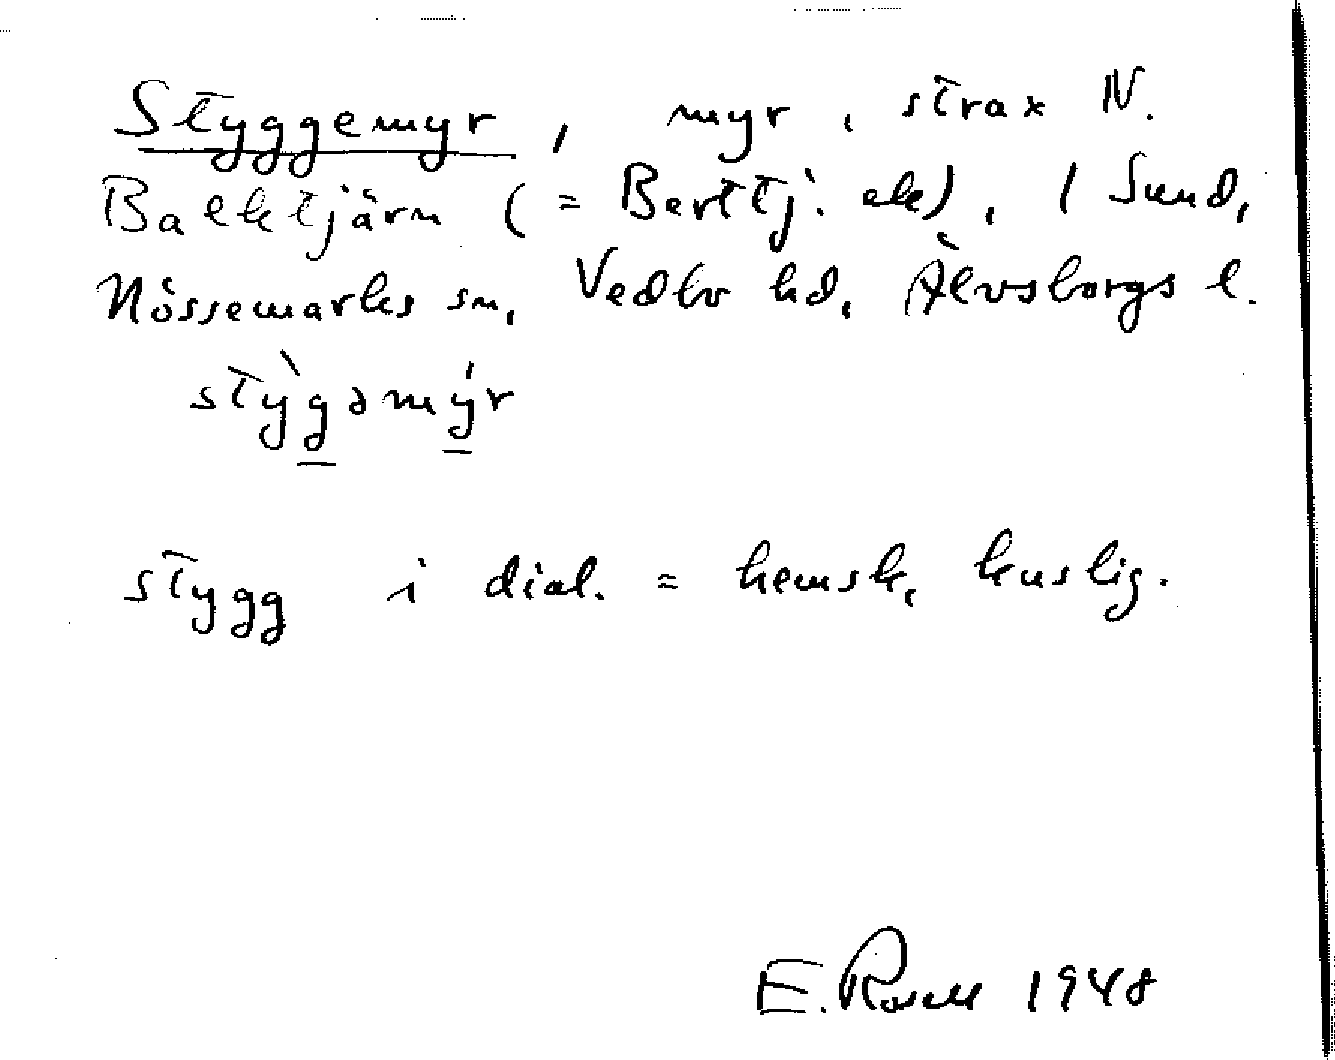 Styggemyr, myr, strax N.
Balktjärn (= Berttj. ek), 1 Sund,
Nössemarks sn, Vedbo hd, Älvsborgs l.
stỳgəmýr
stygg i dial. = hemsk, kuslig.
E. Rosell 1948